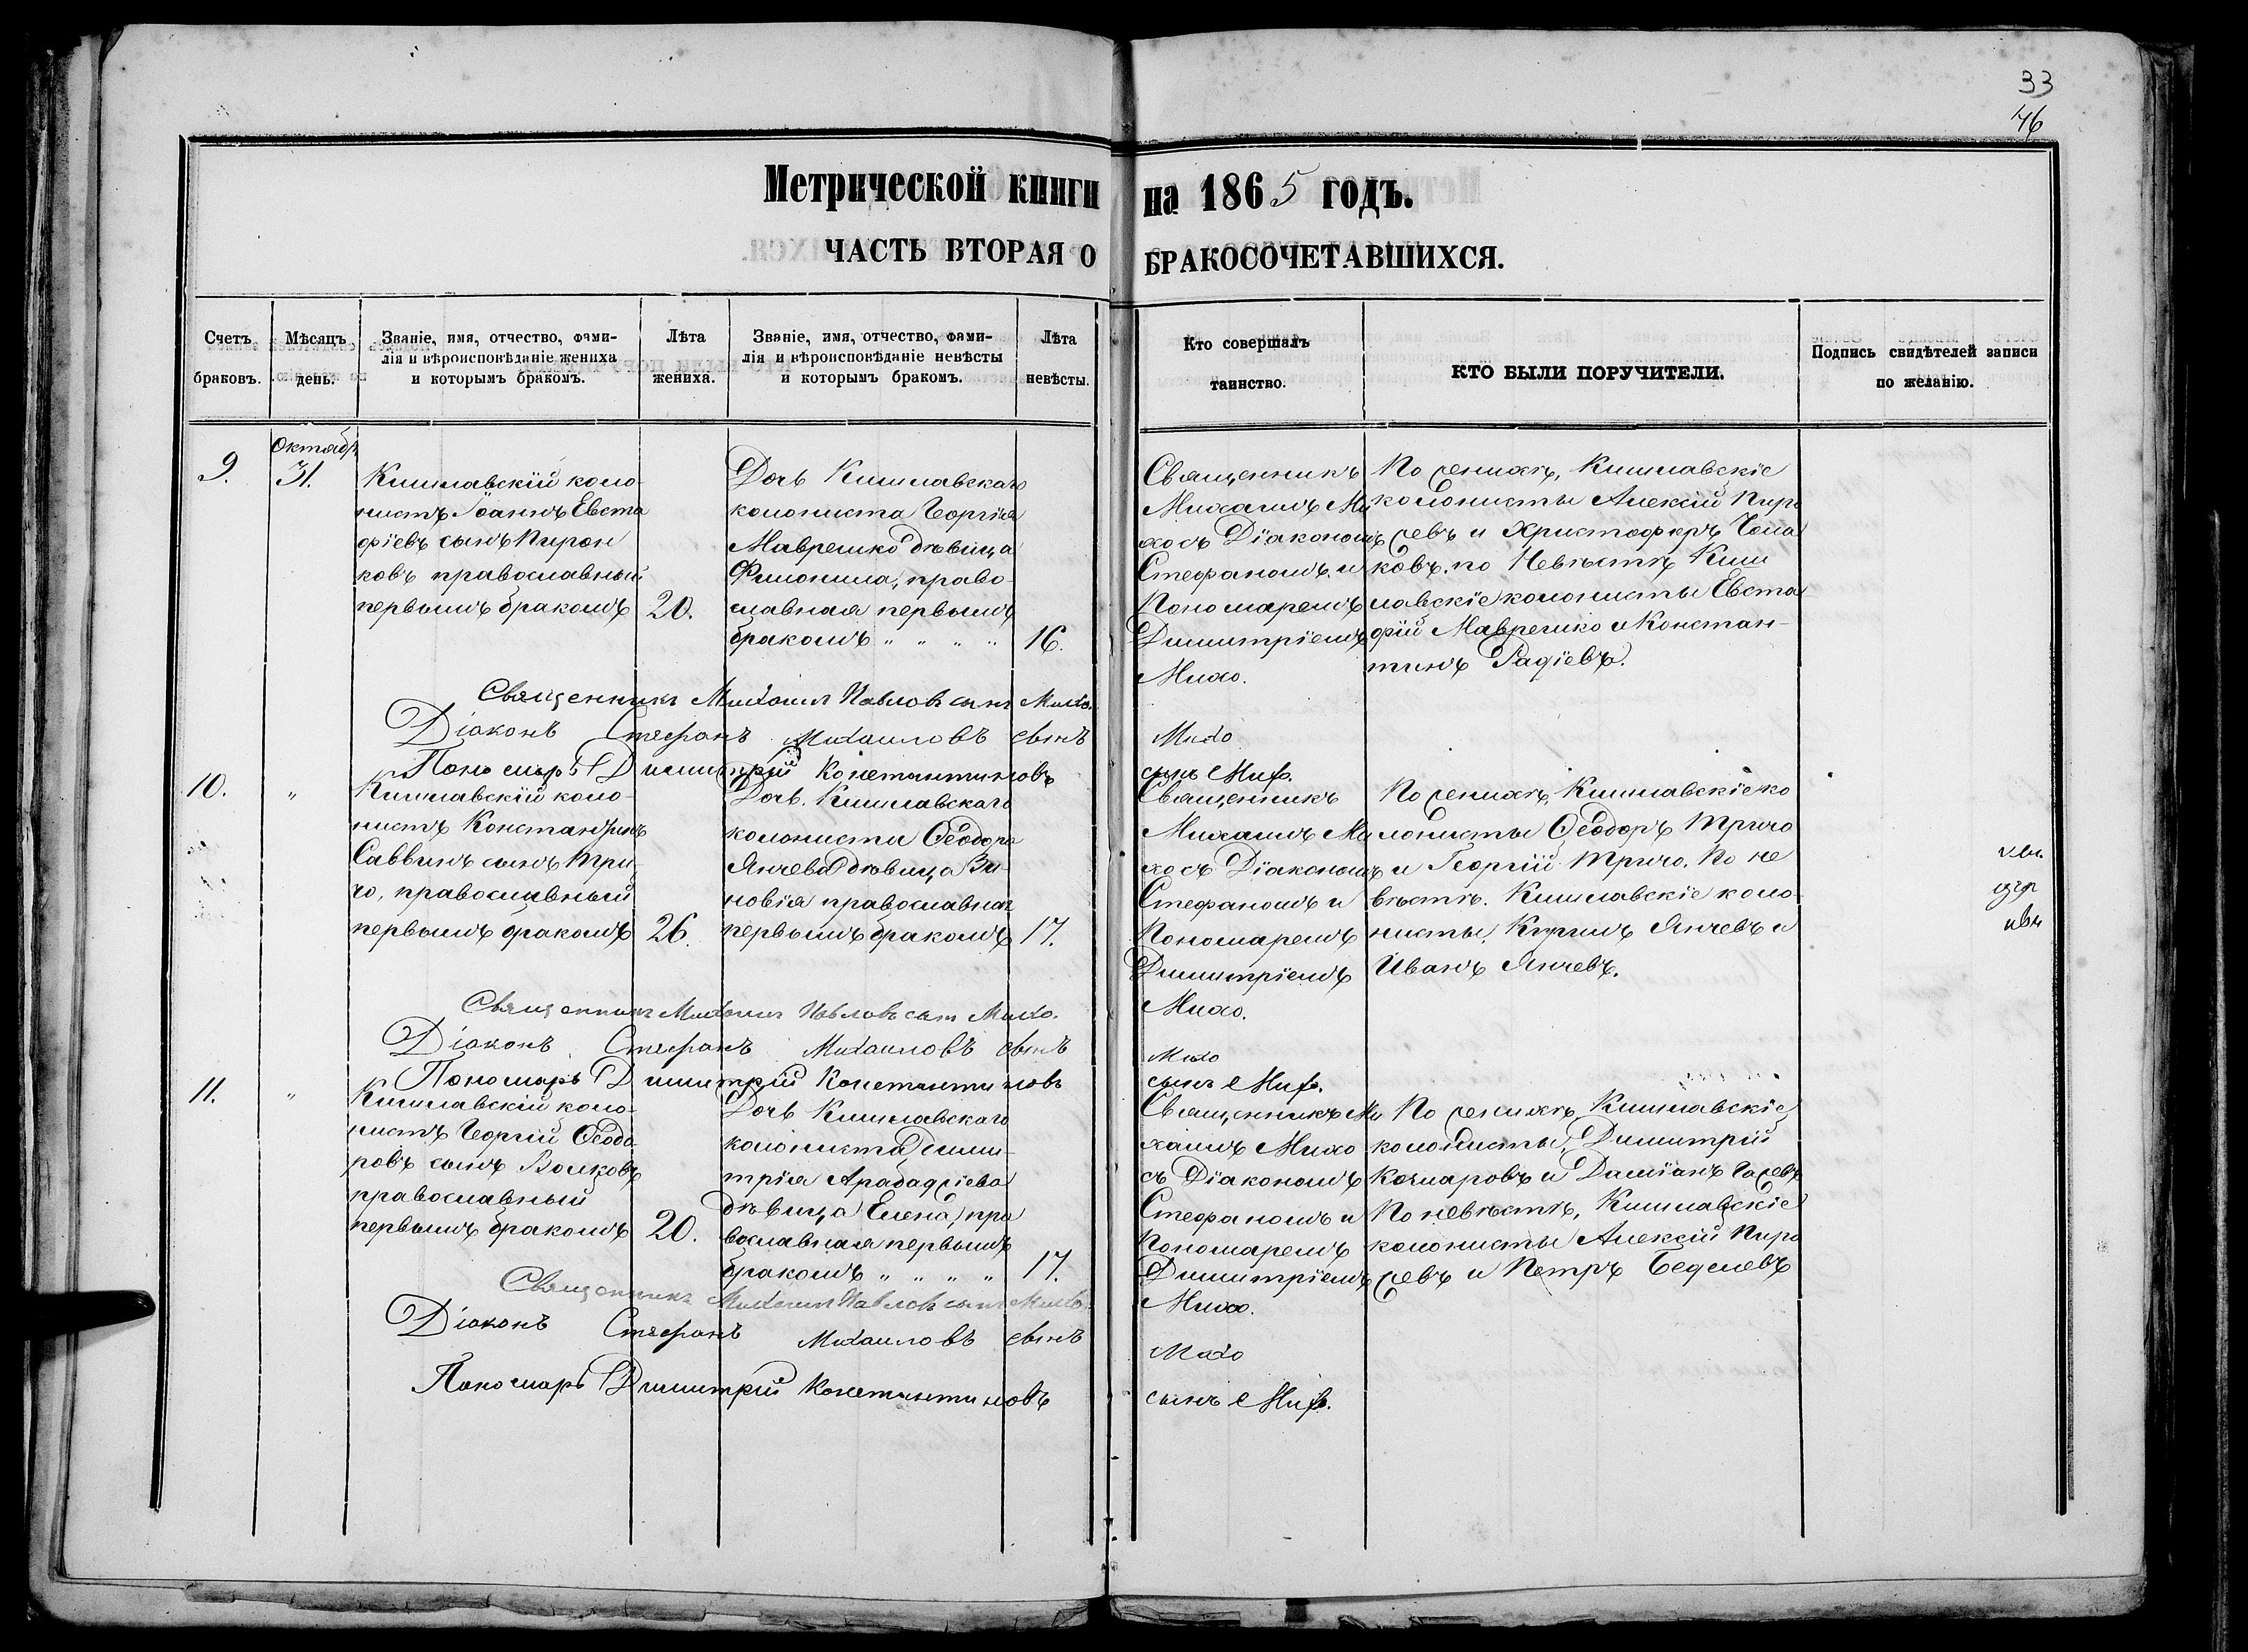 33
46
Метрической книги на 1865 годъ.
ЧАСТЬ ВТОРАЯ О БРАКОСОЧЕТАВШИХСЯ.
Счетъ браковъ.
Мѣсяцъ день.
Званіе, имя, отчество, фами-
лія и вѣроисповѣданіе жениха
и которымъ бракомъ.
Лѣта жениха.
Званіе, имя, отчество, фами-
лія и вѣроисповѣданіе невѣсты
и которымъ бракомъ.
Лѣта невѣсты.
Кто совершалъ
таинство.
КТО БЫЛИ ПОРУЧИТЕЛИ.
Подпись свидѣтелей записи
по желанію.
9.
Октябр
31.
Кишлавскій коло-
нистъ Іоаннъ Евста
фіевъ сынъ Пирон
ковъ православный
первымъ бракомъ
20.
Дочь Кишлавскаго
колониста Георгія
Маврешко дѣвица
Филонила, право-
славная первымъ
бракомъ " " " "
16.
Священникъ
Михаилъ Ми
хо съ Діакономъ
Стефаномъ и
Пономаремъ
Димитріемъ
Михо.
По женихѣ, Кишлавскіе
колонисты Алексій Пиро
жевъ и Христофоръ Чола
ковъ. по Невѣстѣ Киш
лавскіе колонисты Евста
фій Маврешко и Констан-
тинъ Радіевъ.
Священникъ Михаилъ Павловъ сынъ Михо.
Діаконъ Стефанъ Михаиловъ сынъ Михо
Пономарь Димитрій Константиновъ сынъ Михо.
10.
"
Кишлавскій коло-
нистъ Константинъ
Саввинъ сынъ Три
чо, православный
первымъ бракомъ
26.
Дочь Кишлавскаго
колониста Ѳеодора
Янчева дѣвица Зи-
новія православная
первымъ бракомъ
17.
Священникъ
Михаилъ Ми
хо съ Діакономъ
Стефаномъ и
Пономаремъ
Димитріемъ
Михо.
По женихѣ, Кишлавскіе ко
лонисты Ѳеодоръ Тричо
и Георгій Тричо. По не
вѣстѣ. Кишлавскіе коло-
нисты, Кирилъ Янчевъ и
Иванъ Янчевъ.
Священникъ Михаилъ Павловъ сынъ Михо.
Діаконъ Стефанъ Михаиловъ сынъ Михо
Пономарь Димитрій Константиновъ сынъ Михо.
11.
"
Кишлавскій коло-
нистъ Георгій Ѳеодо
ровъ сынъ Волковъ
православный
первымъ бракомъ
20.
Дочь Кишлавскаго
колониста Дими-
трія Арабаджіева
дѣвица Елена, пра
вославная первымъ
бракомъ " " " "
17.
Священникъ Ми
хаилъ Михо
съ Діакономъ
Стефаномъ и
Пономаремъ
Димитріемъ
Михо.
По женихѣ, Кишлавскіе
колонисты, Димитрій
и Даміанъ
По невѣстѣ, Кишлавскіе
колонисты Алексій Пиро
жевъ и Петръ
Священникъ Михаилъ Павловъ сынъ Михо.
Діаконъ Стефанъ Михаиловъ сынъ Михо
Пономарь Димитрій Константиновъ сынъ Михо.